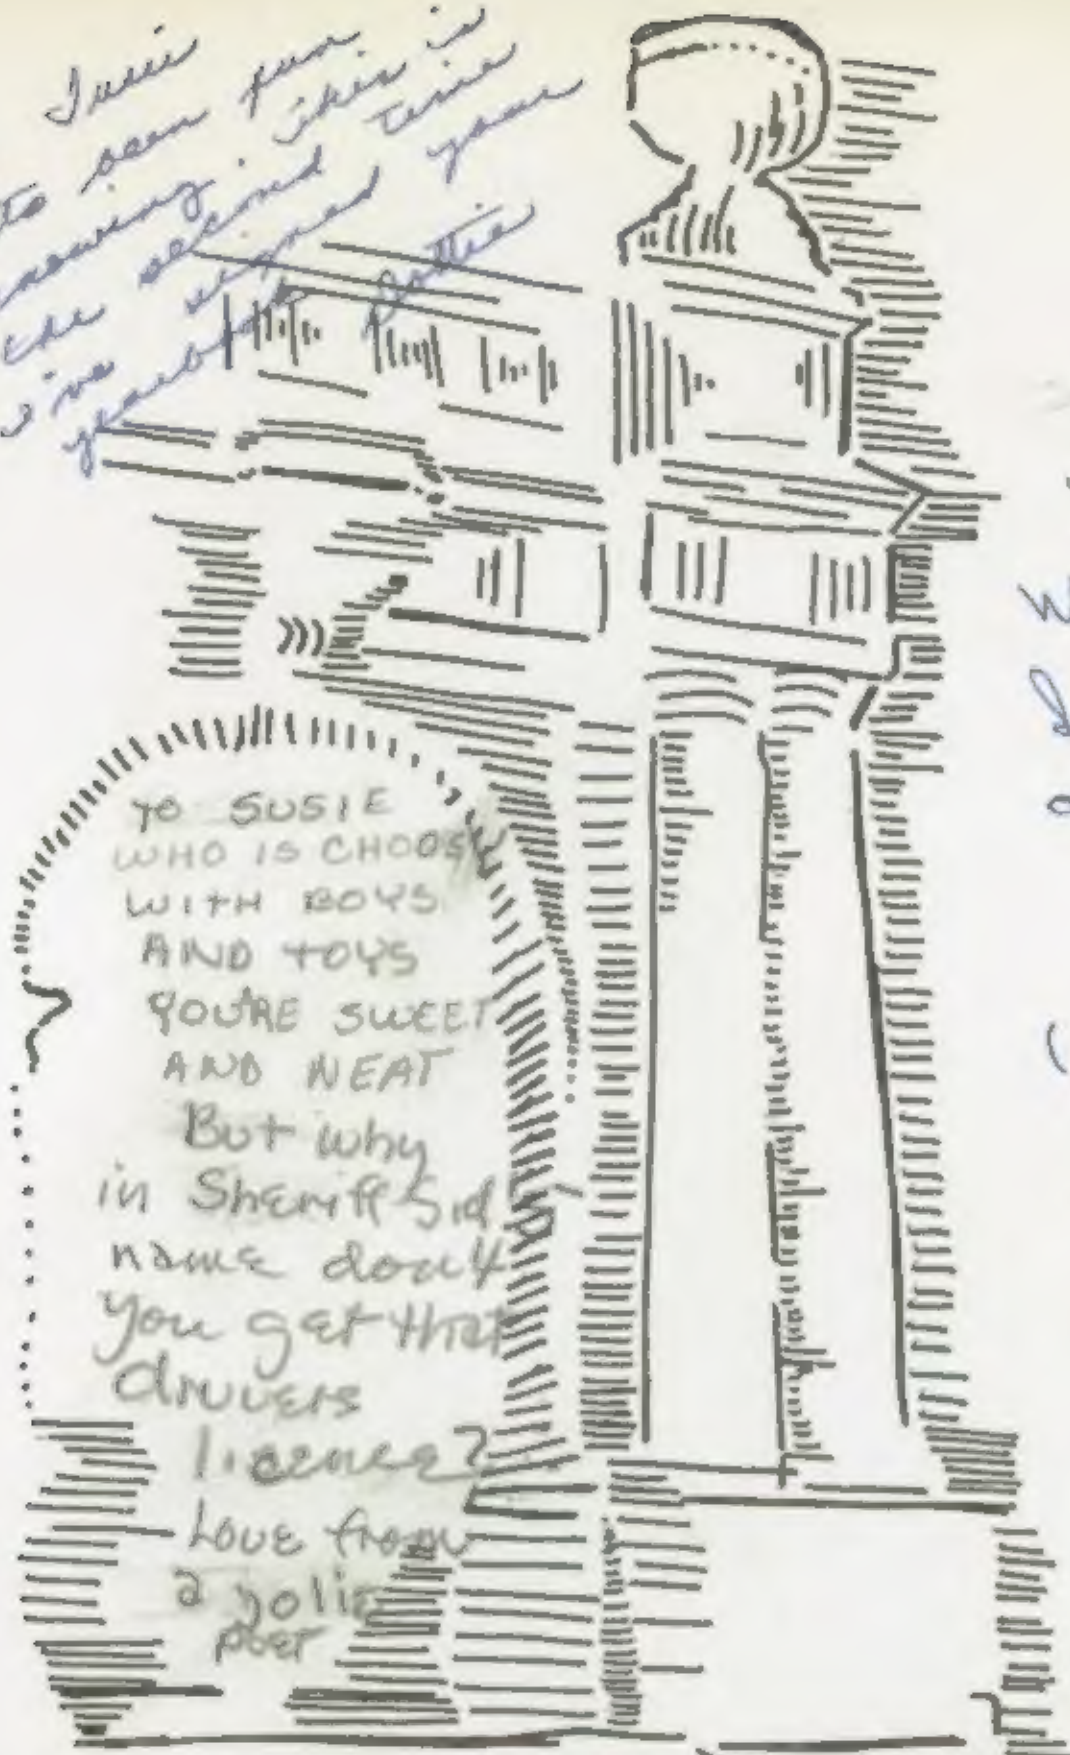 Susie
to been fun
knowing. this is
the second time
I've signed your
yearbook Dottie
TO SUSIE
WHO IS CHOOSY
WITH BOYS
AND TOYS
YOU'RE SWEET
AND NEAT
But why
in Sheriff Sid
name don't
you get that
drivers
licence?
Love from
a jolie
poet